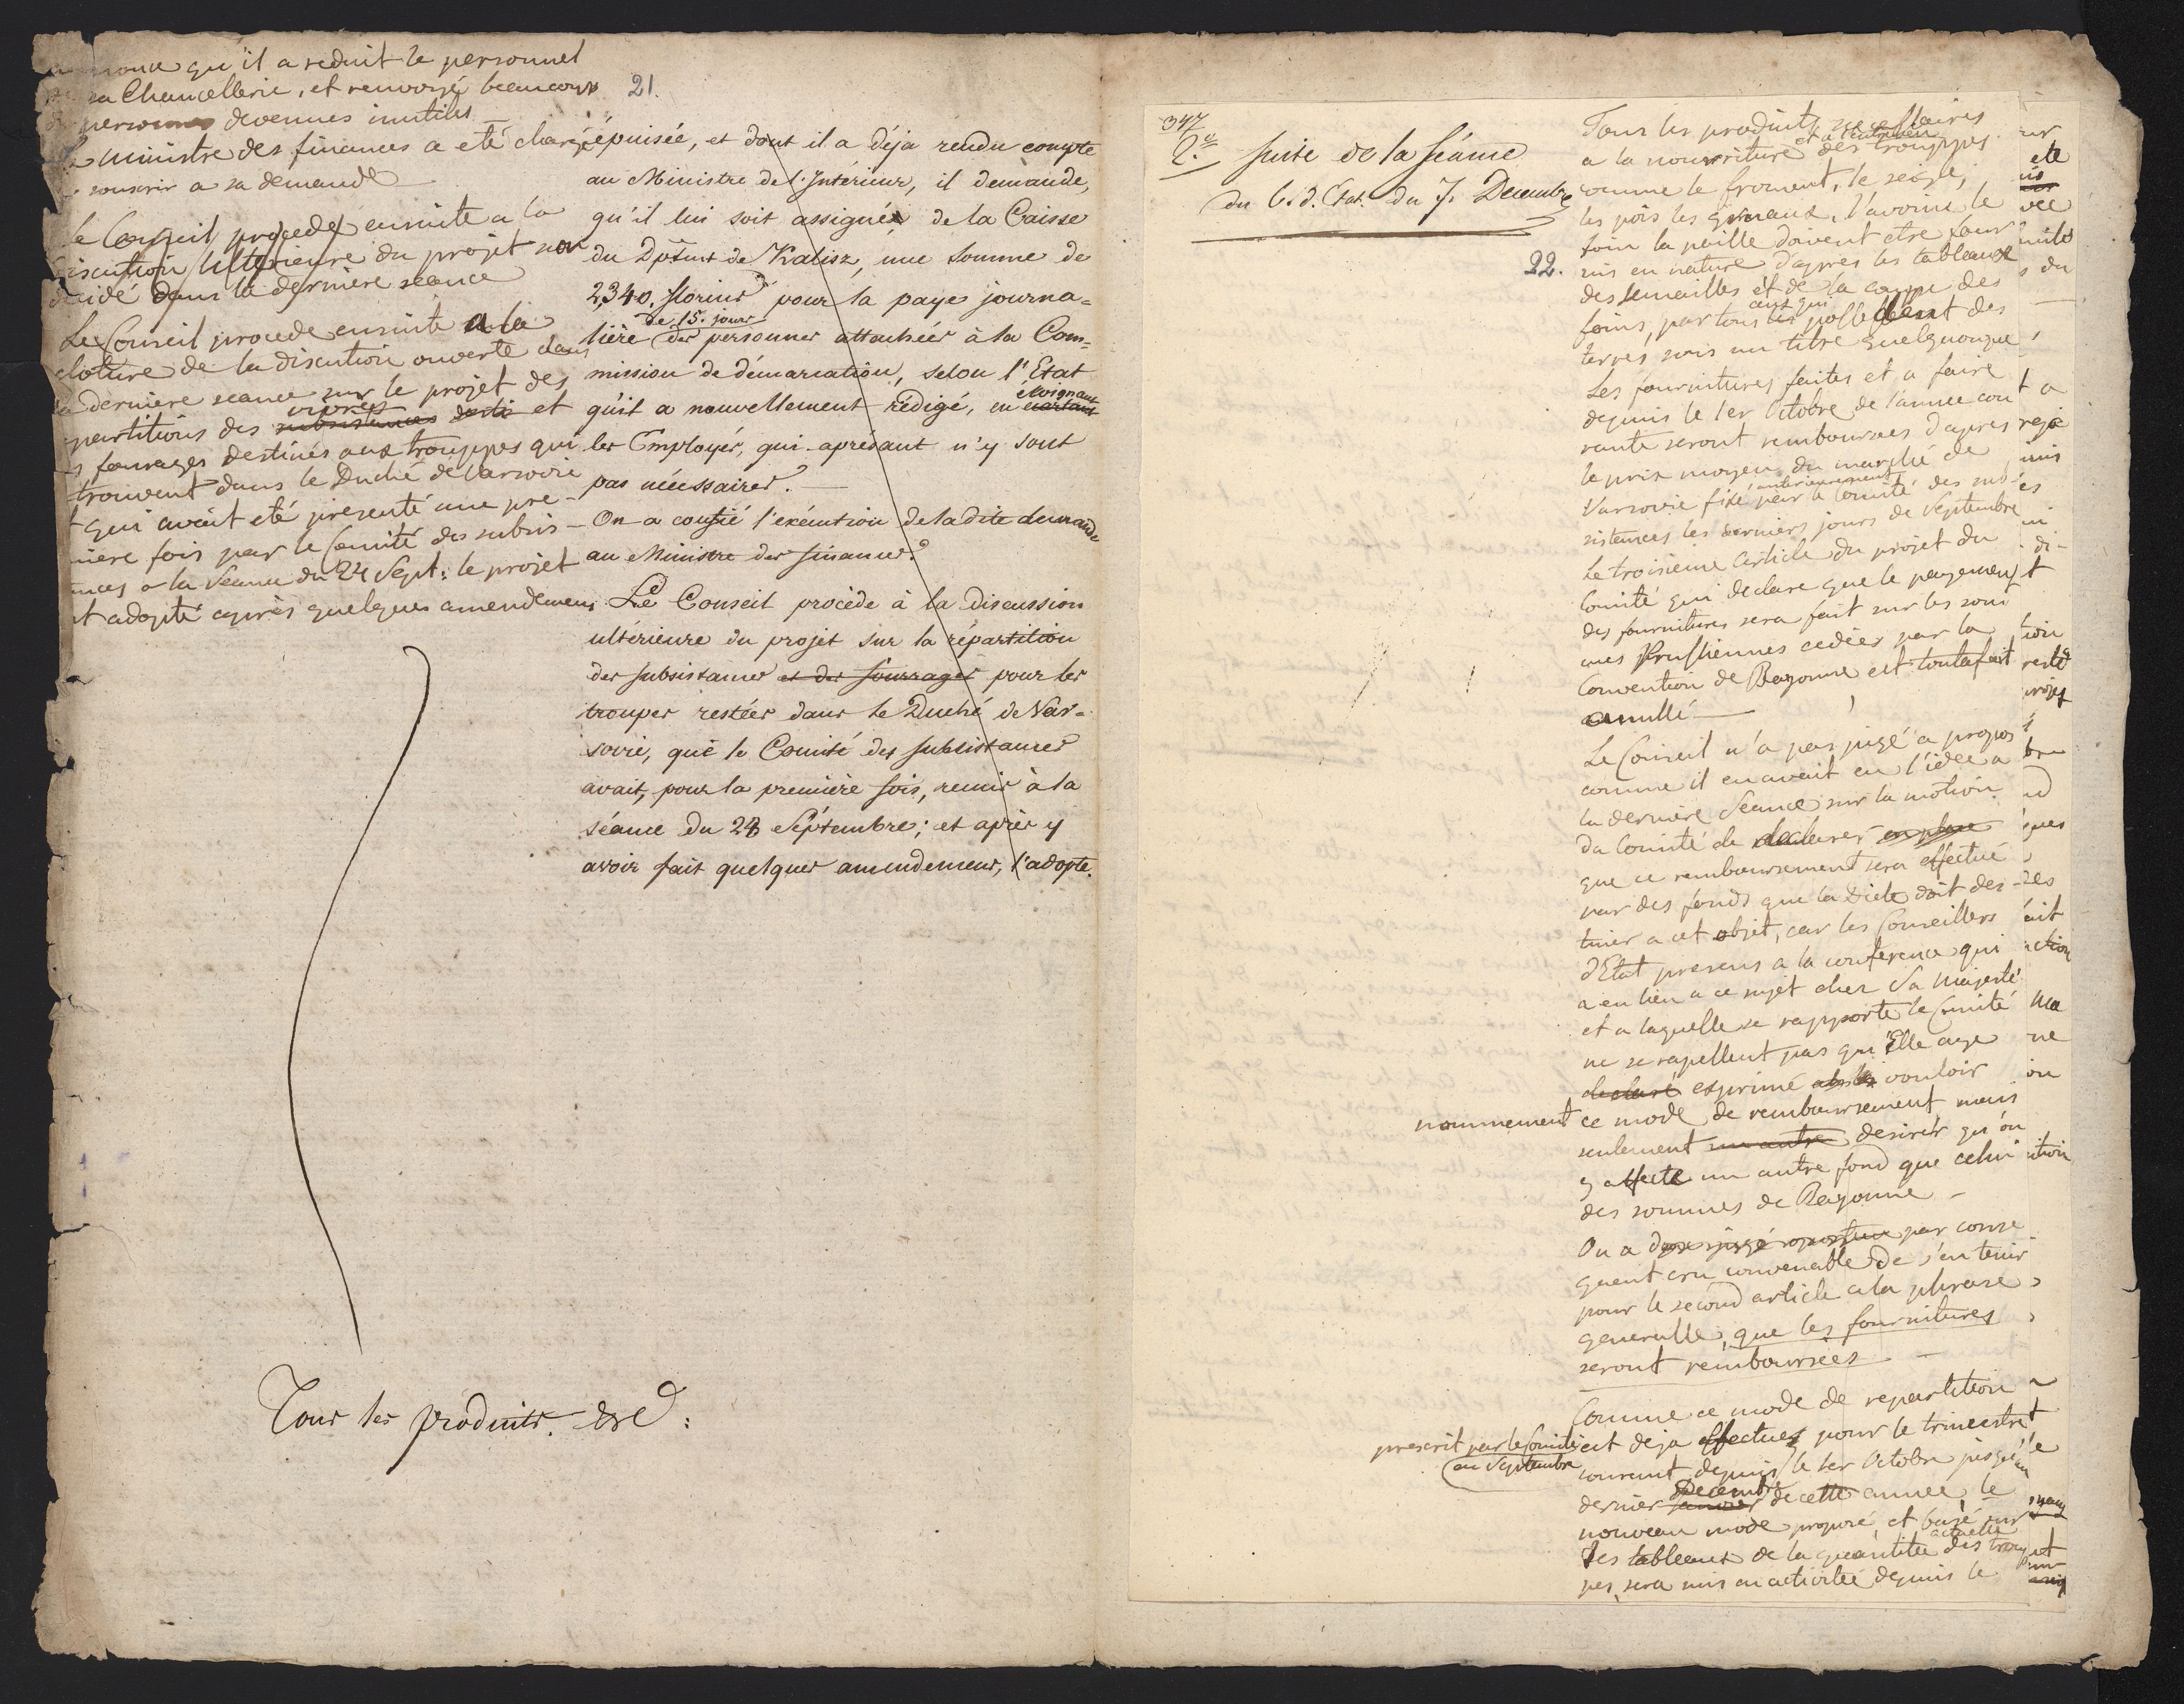 qu'il a reduit le personnel
sa Chancellerie, et renvoyé beaucoup
personnes devenues inutiles
ministre des finances a eté chargé
souscrir a sa demande
Le Conseil procede ensuite a la
discution ulterieure du projet non
decidé dans la derniere séance
Le Conseil procede ensuite a la
cloture de la discution ouverte dans
la derniere seance sur le projet des
repartitions des vivres subsistances et
fourages destinés aux trouppes qui
trouvent dans le Duché de Varsovie
qui avait eté presenté une pre-
miere fois par le Comité des subsis-
tances a la Séance du 24 Sept: le projet
adopté après quelques amendemens
Tous les produits. etc:
21.
épuisée, et dont il a déja rendu compte
au Ministre de l'Intérieur, il demande,
qu'il lui soit assignée de la Caisse
du Dptmt de Kalisz, une somme de
2,340. florins pour la paye journa-
de 15. jours
lière des personnes attachées à la Com-
mission de démarcation, selon l'Etat
éloignant
qu'il a nouvellement rédigé, en écartant
les Employés, qui apresant n'y sont
pas nécessaires.
On a confié l'exécution de la dite demande
au Ministre des finances.
Le Conseil procède à la discussion
ultérieure du projet sur la répartition
des subsistances et des fourrages pour les
troupes restées dans le Duché de Var-
sovie, que le Comité des subsistances
avait, pour la première fois, remis à la
séance du 24 Septembre; et après y
avoir fait quelques amendemens, l'adopte.
347
2.
suite de la séance
du C. d. Etat. du 7. Decembre
22.
Tous les produits necessaires
et a l'entretien
a la nourriture des trouppes
comme le froment, le seigle,
les pois les gruaux, l'avoine le
foin la paille doivent etre four
nis en nature d'apres les tableaux
des semailles et de la coupe des
ceux qui
foins, par tous les possedent des
terres sous un titre quelquonque,
Les fournitures faites et a faire
depuis le 1er Octobre de l'année cou
rante seront remboursées d'apres
le prix moyen du marché de
anterieurement
Varsovie fixé par le Comité des sub
sistences les derniers jours de Septembre
Le troisieme article du projet du
Comité qui declare que le payement
des fournitures sera fait sur les som
mes Prussiennes cedées par la
Convention de Bayonne est toutafait
annullé
Le Conseil n'a pas jugé a propos
comme il en avait eu l'idée a
la derniere Séance sur la motion
du Comité de declarer
que ce remboursement sera effectué
par des fonds que la Diete doit des-
tiner a cet objet, car les Conseillers
d'Etat presens a la conference qui
a eu lieu a ce sujet chez Sa Majesté
et a laquelle se rapporte le Comité
ne se rapellent pas qu'Elle aye
declaré exprimé vouloir
nommement ce mode de remboursement mais
seulement un autre desirér qu'on
y affecte un autre fond que celui
des sommes de Bayonne -
On a par conse
quent cru convenable de s'en tenir
pour le second article a la phrase
generalle, que les fournitures
seront remboursées
Comme ce mode de repartition
prescrit par le Comité est deja effectuez pour le trimestre
en Septembre courant depuis le 1er Octobre jusqu'au
Decembre
dernier janvier de cette année, le
nouveau mode proposé et basé sur
actuelle
les tableaux de la quantitée des troup
pes, sera mis en activitée depuis le